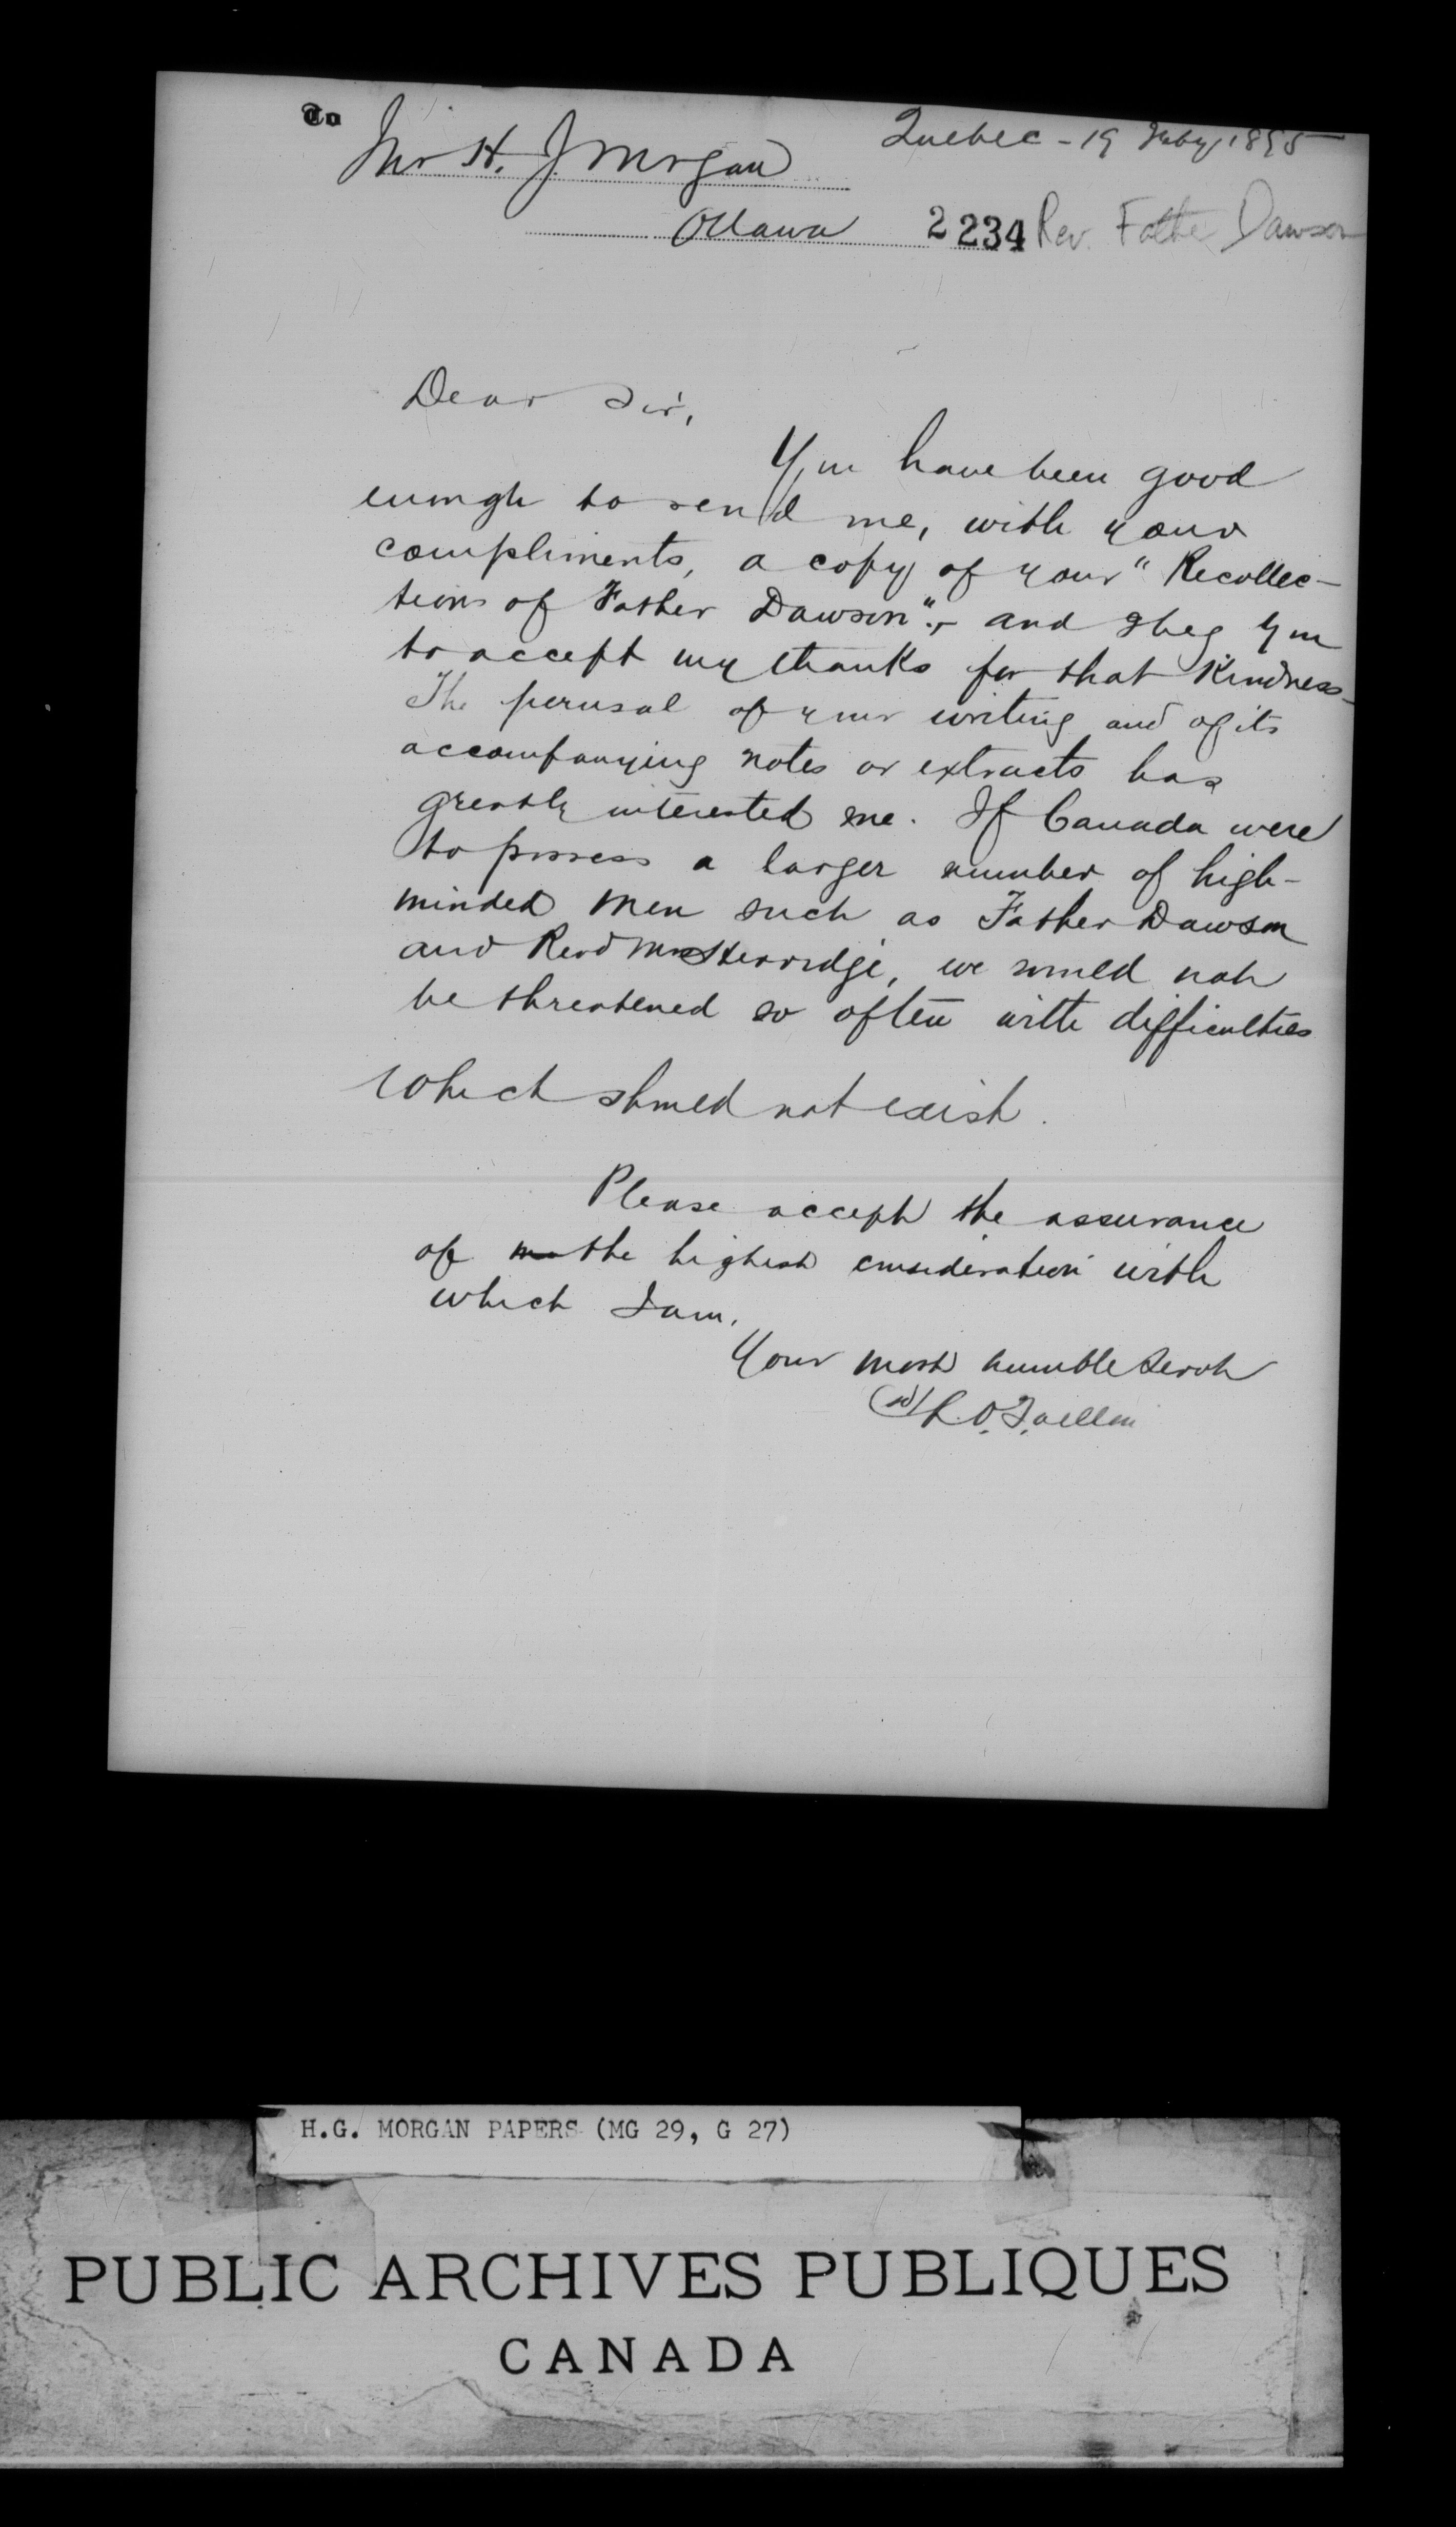 To
Mr H. J. Morgan
Quebec - 19 Feby 1895
Ottawa
2234 Rev. Father Dawson
Dear Sir,
You have been good
enough to send me, with your
compliments, a copy of your "Recollec-
tions of Father Dawson"., and I beg you
to accept my thanks for that kindness
The perusal of your writing and of its
accompanying notes or extracts has
greatly interested me. If Canada were
to possess a larger number of high-
minded men such as Father Dawson
and Revd Mr Herridge, we would not
be threatened so often with difficulties
which should not exist.
Please accept the assurance
of the highest consideration with
which I am,
Your most humble Servt
(sd)
H.G. MORGAN PAPERS (MG 29, G 27)
PUBLIC ARCHIVES PUBLIQUES
CANADA